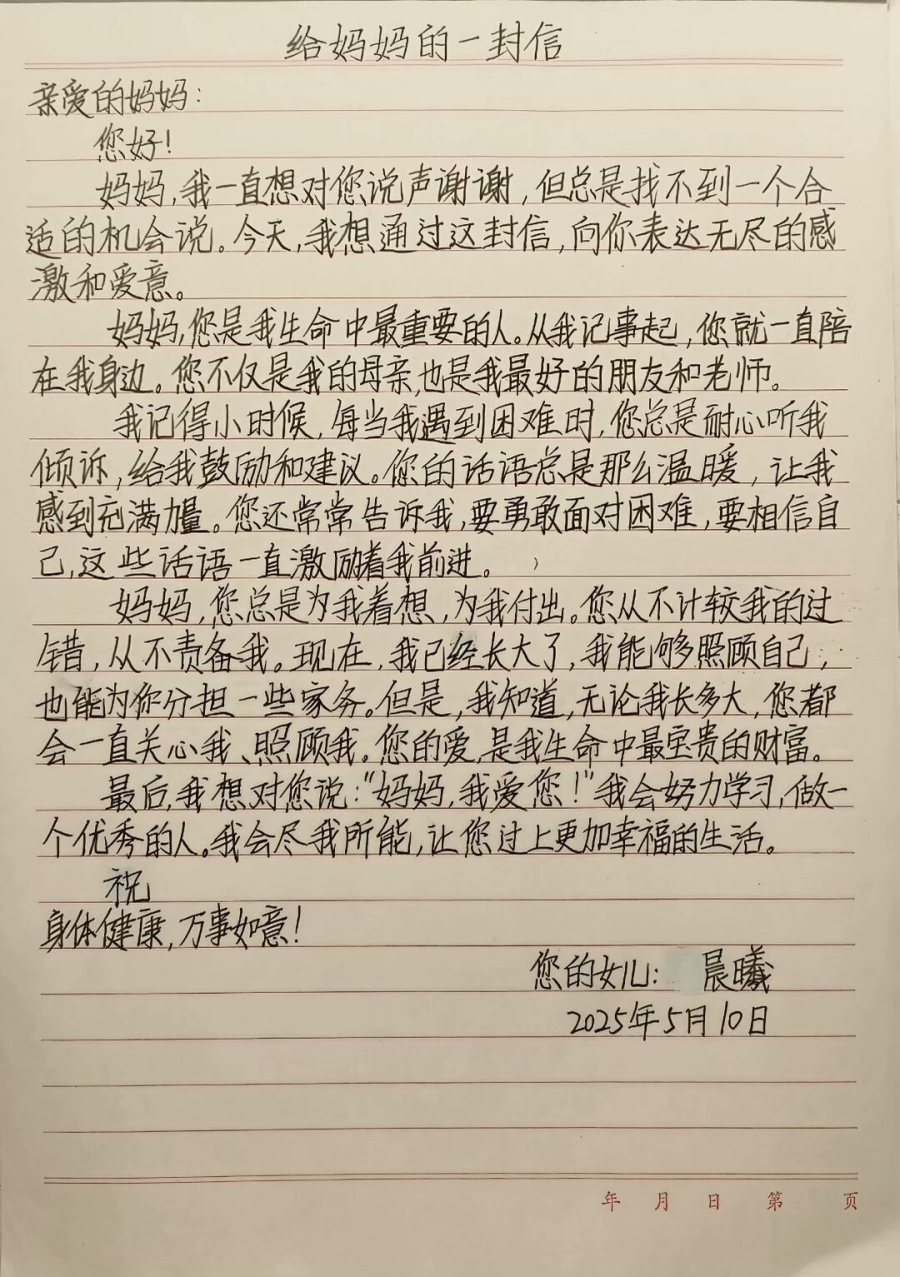 给妈妈的一封信
亲爱的妈妈:
您好!
妈妈,我一直想对您说声谢谢,但总是找不到一个合
适的机会说。今天,我想通过这封信,向你表达无尽的感
激和爱意。
妈妈,您是我生命中最重要的人。从我记事起,您就一直陪
在我身边。您不仅是我的母亲,也是我最好的朋友和老师。
我记得小时候,每当我遇到困难时,您总是耐心听我
倾诉,给我鼓励和建议。您的话语总是那么温暖,让我
感到充满力量。您还常常告诉我,要勇敢面对困难,要相信自
己,这些话语一直激励着我前进。
妈妈,您总是为我着想,为我付出。您从不计较我的过
错,从不责备我。现在,我已经长大了,我能够照顾自己,
也能为你分担一些家务。但是,我知道,无论我长多大,您都
会一直关心我、照顾我。您的爱,是我生命中最宝贵的财富。
最后,我想对您说:“妈妈,我爱您!”我会努力学习,做一
个优秀的人。我会尽我所能,让您过上更加幸福的生活。
祝
身体健康,万事如意!
您的女儿: 晨曦
2025年5月10日
年 月 日 第 页